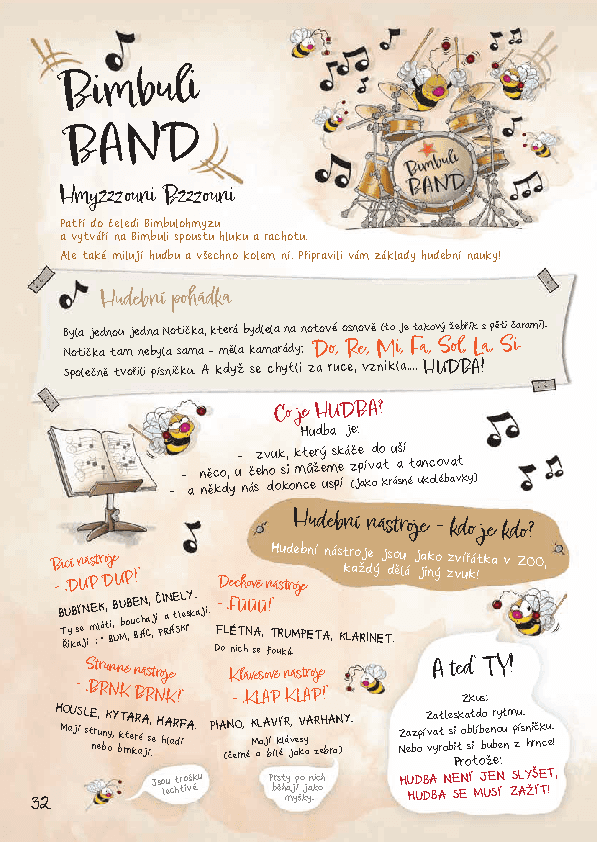 Bimbuli
BAND
Hmyzzzouni Bzzzouni
Patří do čeledi Bimbulohmyzu
a vytváří na Bimbuli spoustu hluku a rachotu.
Ale také milují hudbu a všechno kolem ní. Připravili vám základy hudební nauky!
Bimbuli
BAND
Hudební pohádka
Byla jednou jedna Notička, která bydlela na notové osnově (to je takový žebřík s pěti čarami).
Notička tam nebyla sama - měla kamarády: Do, Re, Mi, Fa, Sol, La, Si.
Společně tvořili písničku. A když se chytli za ruce, vznikla.... HUDBA!
Co je HUDBA?
Hudba je:
- zvuk, který skáče do uší
- něco, u čeho si můžeme zpívat a tancovat
- a někdy nás dokonce uspí (jako krásné ukolébavky)
Hudební nástroje - kdo je kdo?
Hudební nástroje jsou jako zvířátka v ZOO,
každý dělá jiný zvuk!
Bicí nástroje
- „DUP DUP!"
BUBÍNEK, BUBEN, ČINELY.
Ty se mlátí, bouchají a tleskají.
Říkají : " BUM, BÁC, PRÁSK!"
Dechové nástroje
- „Fúúú!"
FLÉTNA, TRUMPETA, KLARINET.
Do nich se fouká.
Strunné nástroje
- „BRNK BRNK!"
HOUSLE, KYTARA, HARFA.
Mají struny, které se hladí
nebo brnkají.
Klávesové nástroje
- „KLAP KLAP!"
PIANO, KLAVÍR, VARHANY.
Mají klávesy
(černé a bílé jako zebra)
Jsou trošku
lechtivé.
Prsty po nich
běhají jako
myšky.
A teď TY!
Zkus:
Zatleskatdo rytmu.
Zazpívat si oblíbenou písničku.
Nebo vyrobit si buben z hrnce!
Protože:
HUDBA NENÍ JEN SLYŠET,
HUDBA SE MUSÍ ZAŽÍT!
32